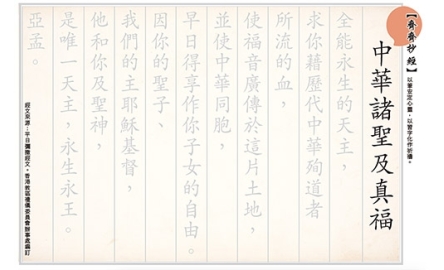 【齊齊抄經】
以筆安定心靈，以習字化作祈禱。
中華諸聖及真福
全能永生的天主，
求你藉歷代中華殉道者
所流的血，
使福音廣傳於這片土地，
並使中華同胞，
早日得享作你子女的自由。
因你的聖子、
我們的主耶穌基督，
他和你及聖神，
是唯一天主，永生永王。
亞孟。
經文來源：平日彌撒經文，香港教區禮儀委員會辦事處編訂